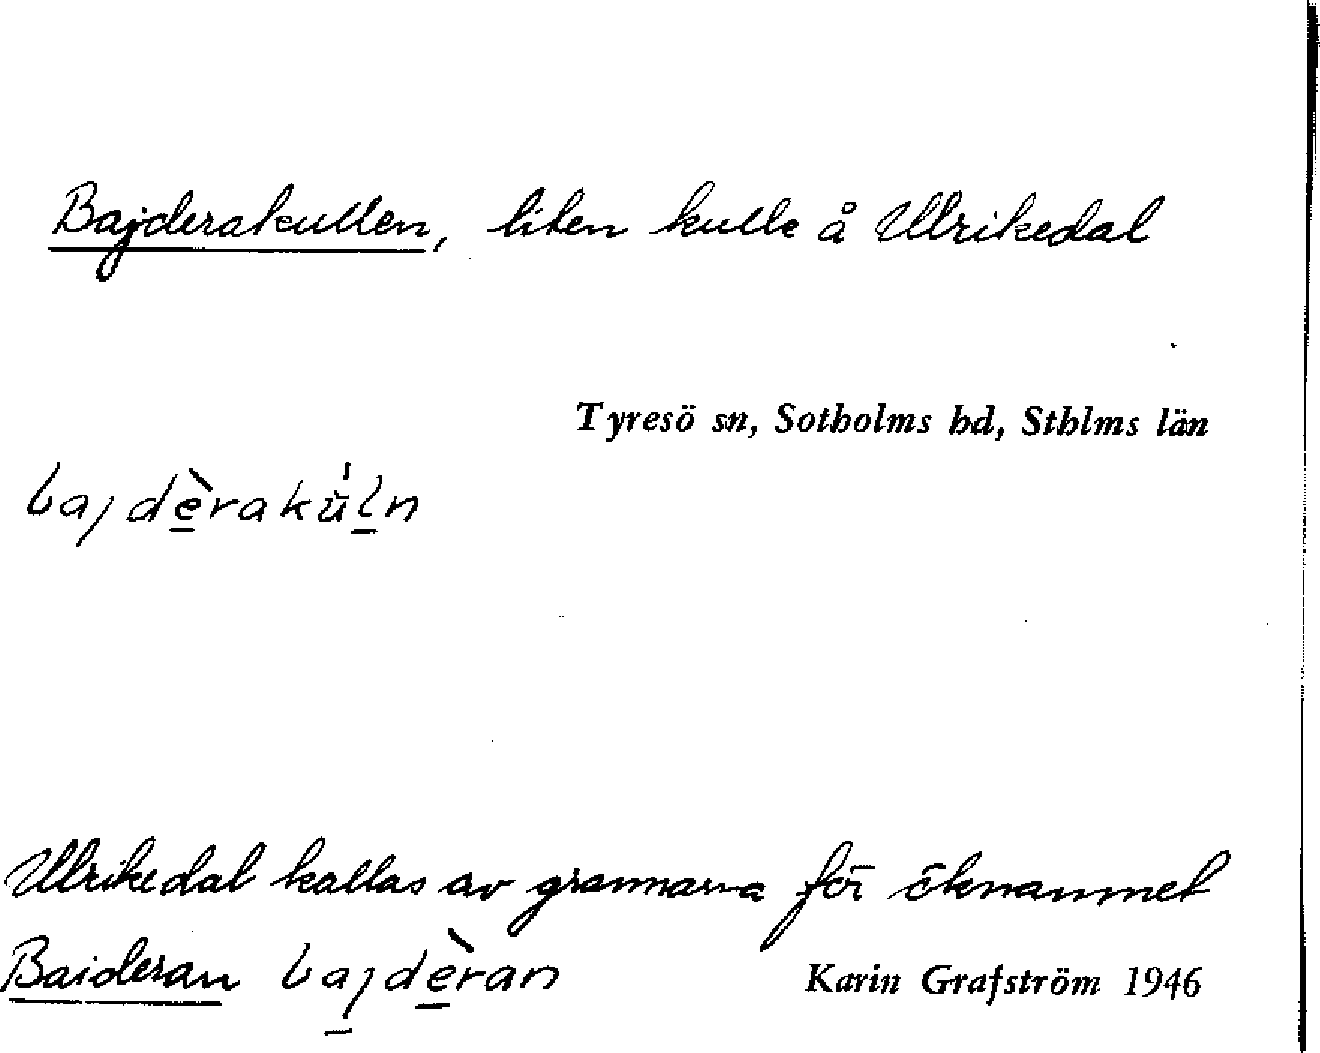 Bajderakullen, liten kulle å Ulrikedal
Tyresö sn, Sotholms hd, Sthlms län
bajdèrakùln
Ulrikedal kallas av grannarna för öknamnet
Baideran bajdèran
Karin Grafström 1946